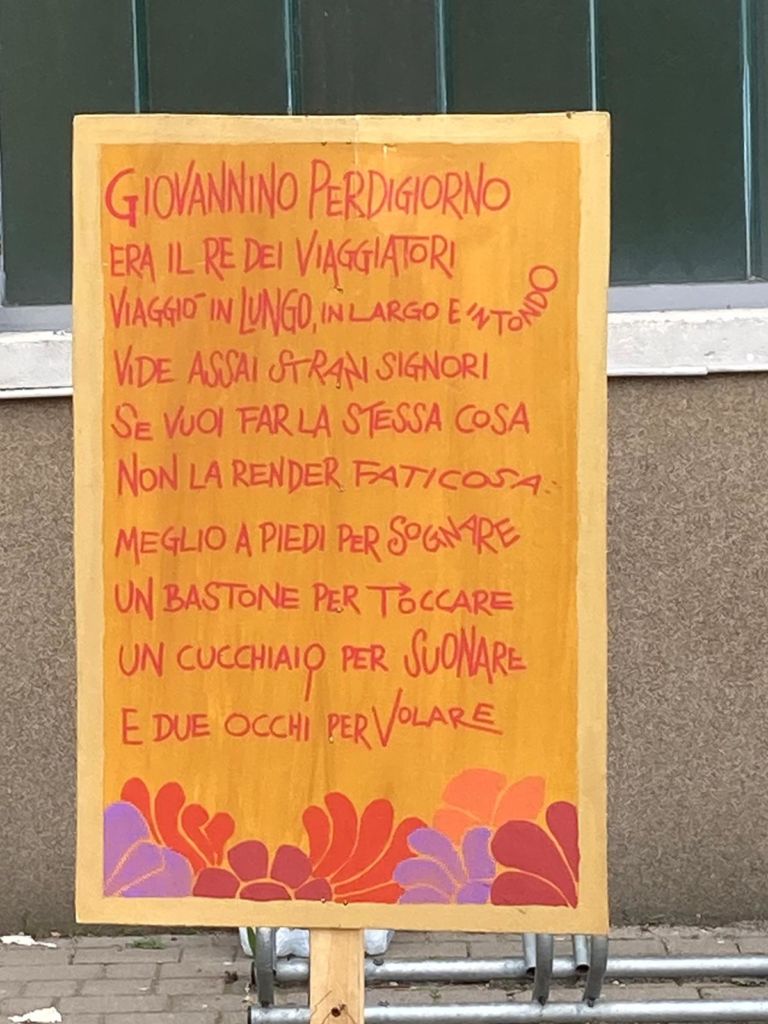 GIOVANNINO PERDIGIORNO
ERA IL RE DEI VIAGGIATORI
VIAGGIÒ IN LUNGO, IN LARGO E IN TONDO
VIDE ASSAI STRANI SIGNORI
SE VUOI FAR LA STESSA COSA
NON LA RENDER FATICOSA
MEGLIO A PIEDI PER SOGNARE
UN BASTONE PER TOCCARE
UN CUCCHIAIO PER SUONARE
E DUE OCCHI PER VOLARE